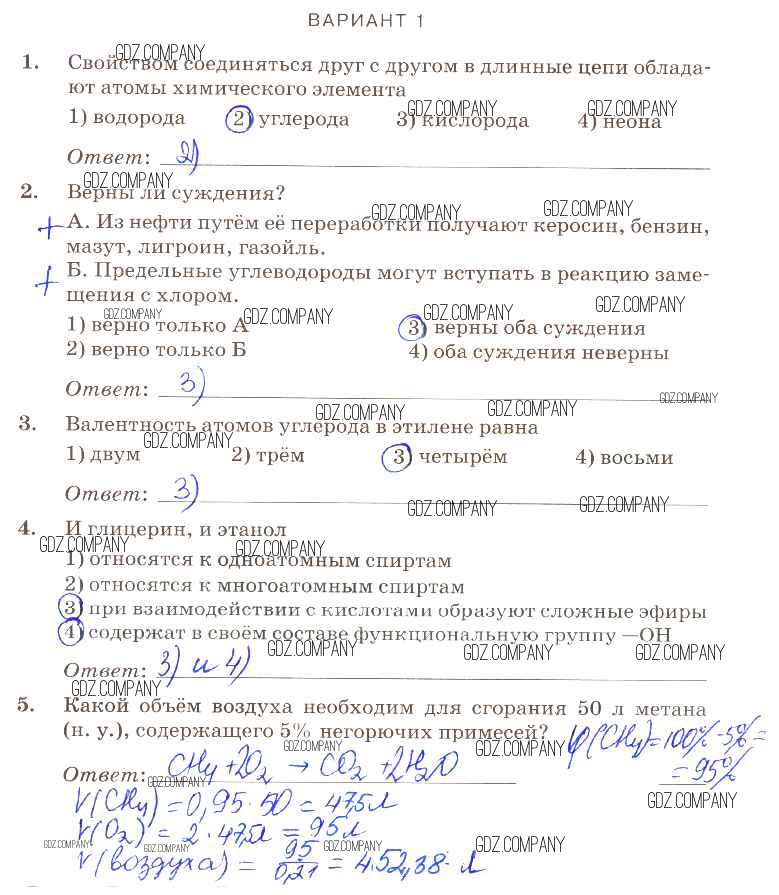 ВАРИАНТ 1
GDZ.COMPANY
1. Свойством соединяться друг с другом в длинные цепи облада-
ют атомы химического элемента
GDZ.COMPANY GDZ.COMPANY
1) водорода 2) углерода 3) кислорода 4) неона
Ответ: 2)
GDZ.COMPANY
2. Верны ли суждения?
GDZ.COMPANY GDZ.COMPANY
+ А. Из нефти путём её переработки получают керосин, бензин,
мазут, лигроин, газойль.
+ Б. Предельные углеводороды могут вступать в реакцию заме-
щения с хлором.
GDZ.COMPANY GDZ.COMPANY GDZ.COMPANY GDZ.COMPANY
1) верно только А 3) верны оба суждения
2) верно только Б 4) оба суждения неверны
Ответ: 3)
GDZ.COMPANY
GDZ.COMPANY GDZ.COMPANY
3. Валентность атомов углерода в этилене равна
GDZ.COMPANY
1) двум 2) трём 3) четырём 4) восьми
Ответ: 3)
GDZ.COMPANY GDZ.COMPANY
4. И глицерин, и этанол
GDZ.COMPANY GDZ.COMPANY
1) относятся к одноатомным спиртам
2) относятся к многоатомным спиртам
3) при взаимодействии с кислотами образуют сложные эфиры
4) содержат в своём составе функциональную группу —ОН
GDZ.COMPANY GDZ.COMPANY GDZ.COMPANY
Ответ: 3) и 4)
GDZ.COMPANY
5. Какой объём воздуха необходим для сгорания 50 л метана
(н. у.), содержащего 5% негорючих примесей? φ(CH4)=100%-5%=
GDZ.COMPANY GDZ.COMPANY
=95%
Ответ: CH4+2O2 → CO2+2H2O
GDZ.COMPANY
V(CH4)=0,95·50=47,5л
GDZ.COMPANY
V(O2)=2·47,5л=95л
GDZ.COMPANY GDZ.COMPANY GDZ.COMPANY GDZ.COMPANY
V(воздуха)= 95/0,21 =452,38 л